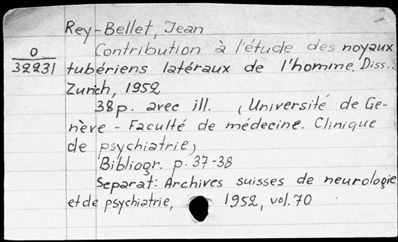 Rey-Bellet, Jean
O
32231
Contribution à l'étude des noyaux
tubériens latéraux de l'homme. Diss..
Zurich, 1952
38p. avec ill. (Université de Ge-
nève - Faculté de médecine. Clinique
de psychiatrie)
Bibliogr. p. 37-38
Separat: Archives suisses de neurologie
et de psychiatrie, 1952, vol. 70